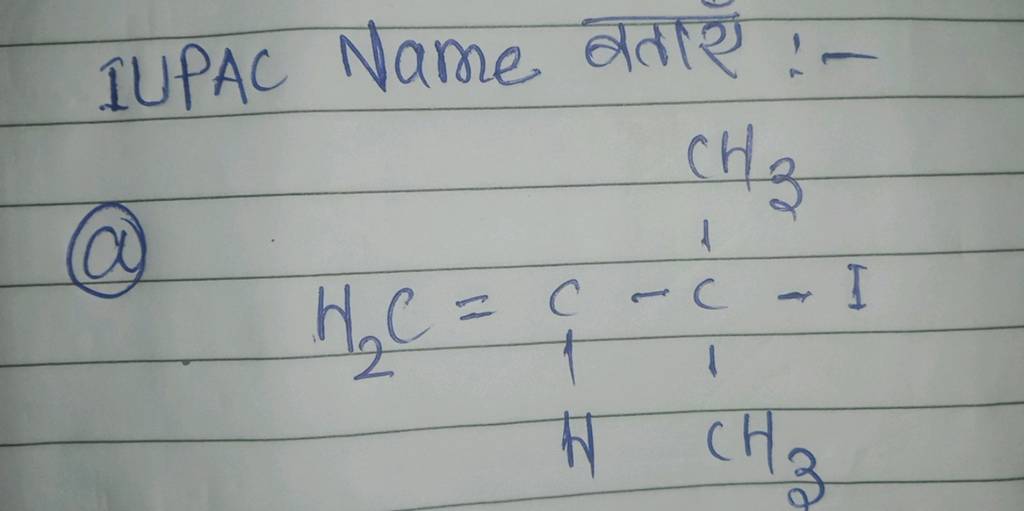 IUPAC Name बताएँ :-
CH3
(a)
H2C = C - C - I
H CH3